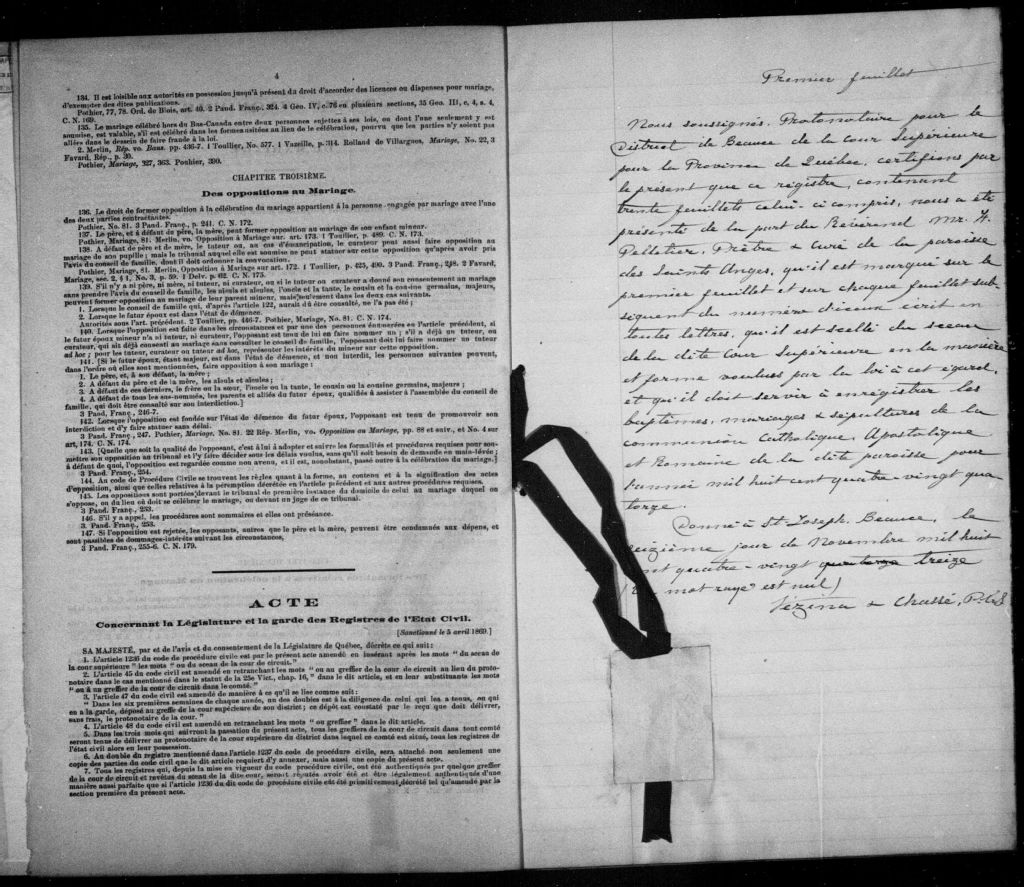 4
134. Il est loisible aux autorités en possession jusqu'à présent du droit d'accorder des licences ou dispenses pour mariage,
d'exempter des dites publications.
Pothier, 77, 78. Ord. de Blois, art. 40. 2 Pand. Franç. 324. 4 Géo. IV, c. 76 en plusieurs sections, 35 Geo. III, c, 4, s. 4,
C. N. 169.
135. Le mariage célébré hors du Bas-Canada entre deux personnes sujettes à ses lois, ou dont l'une seulement y est
soumise, est valable, s'il est célébré dans les formes usitées au lieu de la célébration, pourvu que les parties n'y soient pas
allées dans le dessein de faire fraude à la loi.
2. Merlin, Rép. vo. Bans. pp. 436-7. 1 Toullier, No. 577. 1 Vazeille, p. 314. Rolland de Villargues, Mariage, No. 22, 3
Favard. Rép., p. 30.
Pothier, Mariage, 327, 363. Pouhier, 390.
CHAPITRE TROISIÈME.
Des oppositions au Mariage.
136. Le droit de former opposition à la célébration du mariage appartient à la personne engagée par mariage avec l'une
des deux parties contractantes.
Pothier, No. 81. 3 Pand. Franç., p. 241. C. N. 172.
137. Le père, et à défaut de père, la mère, peut former opposition au mariage de son enfant mineur.
Pothier, Mariage, 81. Merlin, vo. Opposition à Mariage sur. art. 173. 1 Toullier, p. 489. C. N. 173.
138. A défaut de père et de mère, le tuteur ou, au cas d'émancipation, le curateur peut aussi faire opposition au
mariage de son pupille; mais le tribunal auquel elle est soumise ne peut statuer sur cette opposition qu'après avoir pris
l'avis du conseil de famille, dont il doit ordonner la convocation.
Pothier, Mariage, 81. Merlin, Opposition à Mariage sur art. 172. 1 Toullier, p. 425, 490. 3 Pand. Franç., 248. 2 Favard,
Mariage, sec. 2, § 1, No. 3, p. 59. 1 Delv. p. 62. C. N. 175.
139. S'il n'y a ni père, ni mère, ni tuteur, ni curateur, ou si le tuteur ou curateur a donné son consentement au mariage
sans prendre l'avis du conseil de famille, les aïeuls et aïeules, l'oncle et la tante, le cousin et la cousine germains, majeurs,
peuvent former opposition au mariage de leur parent mineur, mais seulement dans les deux cas suivants.
1. Lorsque le conseil de famille qui, d'après l'article 122, aurait dû être consulté, ne l'a pas été;
2. Lorsque le futur époux est dans l'état de démence.
Autorités sous l'art. précédent. 2 Toullier, pp. 446-7. Pothier, Mariage, No. 81. C. N. 174.
140. Lorsque l'opposition est faite dans les circonstances et par une des personnes énumérées en l'article précédent, si
le futur époux mineur n'a ni tuteur, ni curateur, l'opposant est tenu de lui en faire nommer un; s'il a déjà un tuteur, ou
curateur, qui ait déjà consenti au mariage sans consulter le conseil de famille, l'opposant doit lui faire nommer un tuteur
ad hoc; pour les tuteur, curateur ou tuteur ad hoc, représenter les intérêts du mineur sur cette opposition.
141. [Si le futur époux, étant majeur, est dans l'état de démence, et non interdit, les personnes suivantes peuvent,
dans l'ordre où elles sont mentionnées, faire opposition à son mariage:
1. Le père, et, à son défaut, la mère;
2. A défaut du père et de la mère, les aïeuls et aïeules;
3. A défaut de ces derniers, le frère ou la sœur, l'oncle ou la tante, le cousin ou la cousine germains, majeurs;
4. A défaut de tous les sus-nommés, les parents et alliés du futur époux, qualifiés à assister à l'assemblée du conseil de
famille, qui doit être consulté sur son interdiction.]
3 Pand. Franç., 246-7.
142. Lorsque l'opposition est fondée sur l'état de démence du futur époux, l'opposant est tenu de promouvoir son
interdiction et d'y faire statuer sans délai.
3 Pand. Franç., 247. Pothier, Mariage, No. 81. 22 Rép. Merlin, vo. Opposition au Mariage, pp. 88 et suiv., et No. 4 sur
art, 174. C. N. 174.
143. [Quelle que soit la qualité de l'opposant, c'est à lui à adopter et suivre les formalités et procédures requises pour sou-
mettre son opposition au tribunal et l'y faire décider sous les délais voulus, sans qu'il soit besoin de demande en main-levée;
à défaut de quoi, l'opposition est regardée comme non avenue, et il est, nonobstant, passé outre à la célébration du mariage.]
3 Pand. Franç., 254.
144. Au code de Procédure Civile se trouvent les règles quant à la forme, au contenu et à la signification des actes
d'opposition, ainsi que celles relatives à la péremption décrétée en l'article précédent et aux autres procédures requises.
145. Les oppositions sont portées devant le tribunal de première instance du domicile de celui au mariage duquel on
s'oppose, ou du lieu où doit se célébrer le mariage, ou devant un juge de ce tribunal.
3 Pand. Franç., 253.
146. S'il y a appel, les procédures sont sommaires et elles ont préséance.
3 Pand. Franç., 253.
147. Si l'opposition est rejetée, les opposants, autres que le père et la mère, peuvent être condamnés aux dépens, et
sont passibles de dommages-intérêts suivant les circonstances,
3 Pand. Franç., 255-6. C. N. 179.
ACTE
Concernant la Législature et la garde des Registres de l'Etat Civil.
[Sanctionné le 5 avril 1869.]
SA MAJESTÉ, par et de l'avis et du consentement de la Législature de Québec, décrète ce qui suit:
1. L'article 1236 du code de procédure civile est par le présent acte amendé en insérant après les mots " du sceau de
la cour supérieure " les mots " ou du sceau de la cour de circuit."
2. L'article 45 du code civil est amendé en retranchant les mots " ou au greffier de la cour de circuit au lieu du proto-
notaire dans le cas mentionné dans le statut de la 25e Vict., chap. 16," dans le dit article, et en leur substituants les mots
" ou à un greffier de la cour de circuit dans le comté."
3. l'article 47 du code civil est amendé de manière à ce qu'il se lise comme suit:
" Dans les six premières semaines de chaque année, un des doubles est à la diligence de celui qui les a tenus, ou qui
en a la garde, déposé au greffe de la cour supérieure de son district; ce dépôt est constaté par le reçu que doit délivrer,
sans frais, le protonotaire de la cour. "
4. L'article 48 du code civil est amendé en retranchant les mots " ou greffier " dans le dit article.
5. Dans les trois mois qui suivront la passation du présent acte, tous les greffiers de la cour de circuit dans tout comté
seront tenus de délivrer au protonotaire de la cour supérieure du district dans lequel ce comté est situé, tous les registres de
l'état civil alors en leur possession.
6. Au double du registre mentionné dans l'article 1237 du code de procédure civile, sera attaché non seulement une
copie des parties du code civil que le dit article requiert d'y annexer, mais aussi une copie du présent acte.
7. Tous les registres qui, depuis la mise en vigueur du code de procédure civile, ont été authentiqués par quelque greffier
de la cour de circuit et revêtus du sceau de la dite cour, seront réputés avoir été et être légalement authentiqués d'une
manière aussi parfaite que si l'article 1236 du dit code de procédure eût été primitivement décrété tel qu'amendé par la
section première du présent acte.
Premier feuillet
Nous soussignés, Protonotaire pour le
District de Beauce de la Cour Supérieure
pour la Province de Québec, certifions par
le présent que ce régistre, contenant
trente feuillets celui-ci compris, nous a été
présenté de la part du Révérend Mr. F.
Pelletier, Prêtre & curé de la paroisse
des Saints Anges, qu'il est marqué sur le
premier feuillet et sur chaque feuillet sub-
séquent du numéro d'iceux écrit en
toutes lettres, qu'il est scellé du sceau
de la dite Cour Supérieure en la manière
et forme voulues par la loi à cet égard,
et qu'il doit servir à enregistrer les
baptêmes, mariages & sépultures de la
communion Catholique, Apostolique
et Romaine de la dite paroisse pour
l'année mil huit cent quatre-vingt qua
torze.
Donné à St-Joseph, Beauce, le
seizième jour de Novembre mil huit
cent quatre-vingt quatorze treize
mot rayé est nul)
Vézina & Chassé, P.C.S